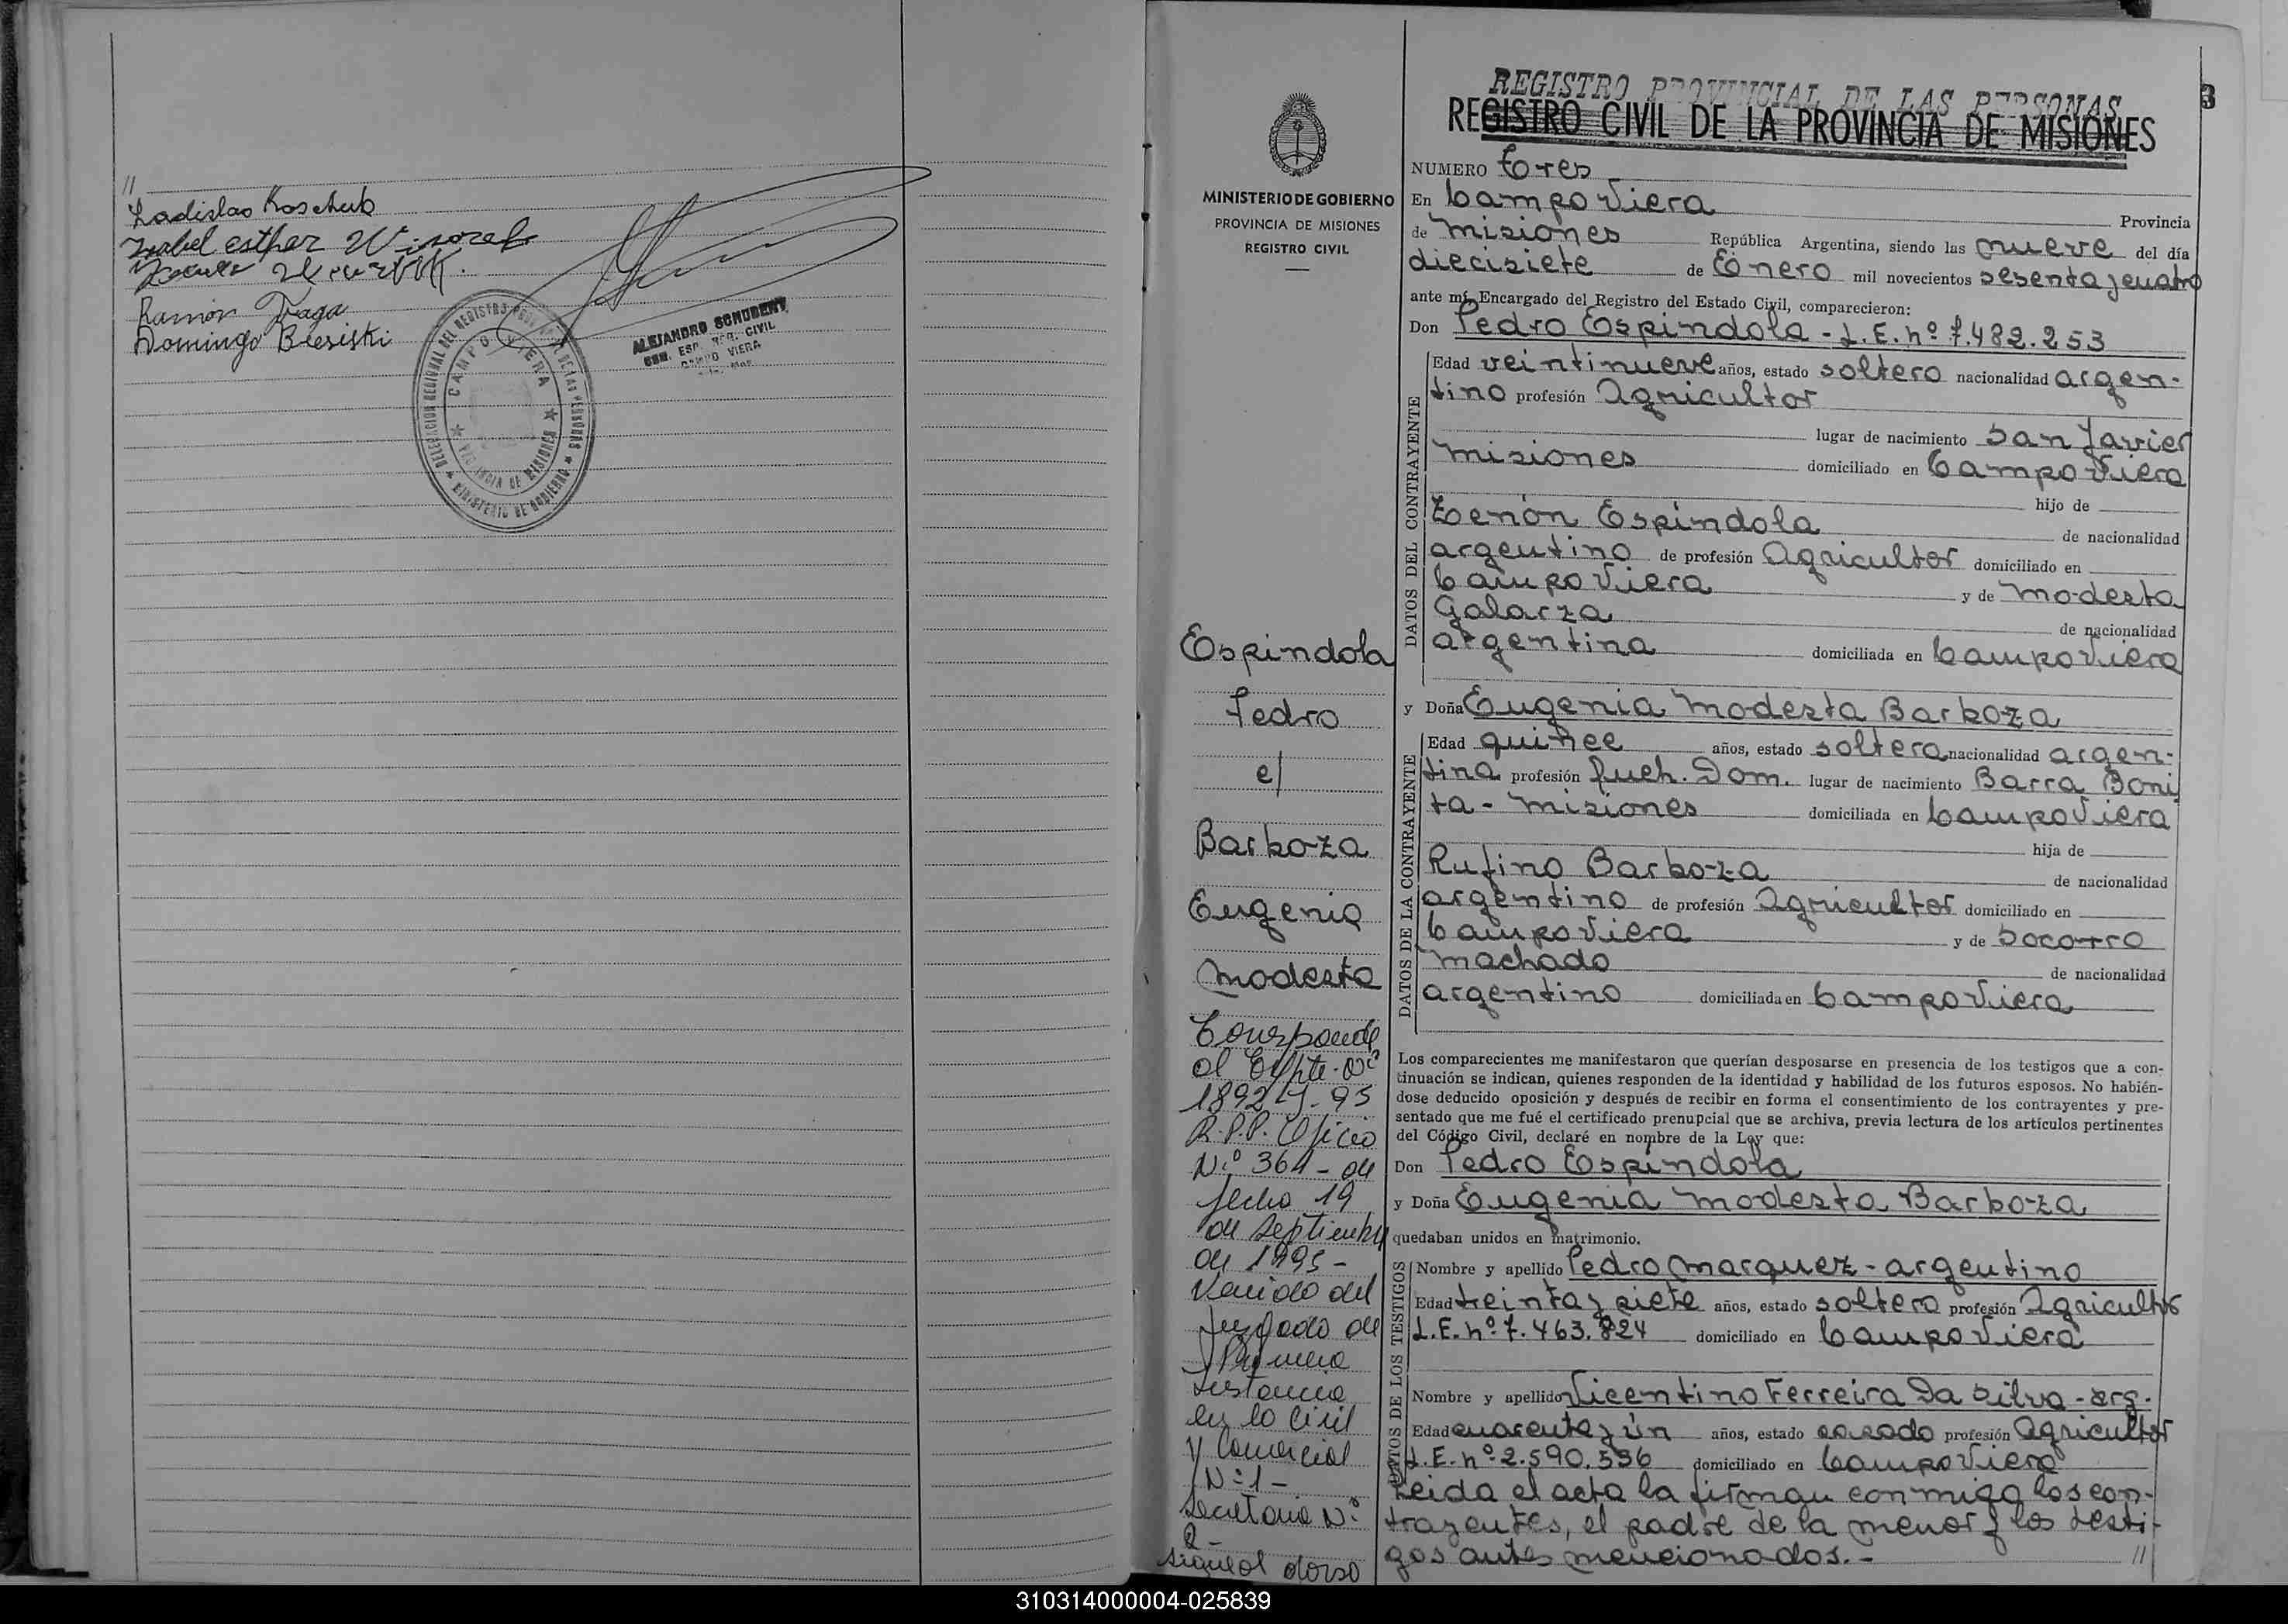 //
Ladislao Koschub
Isabel esther
Ramón Fraga
Domingo Blesiski
DELEGACION REGIONAL DEL REGISTRO PROVINCIAL DE LAS PERSONAS
CAMPO VIERA
PROVINCIA DE MISIONES
MINISTERIO DE GOBIERNO
ALEJANDRO SCHUBERT
REG. CIVIL
CAMPO VIERA
3
REGISTRO PROVINCIAL DE LAS PERSONAS
REGISTRO CIVIL DE LA PROVINCIA DE MISIONES
MINISTERIO DE GOBIERNO
PROVINCIA DE MISIONES
REGISTRO CIVIL
NUMERO tres
En Campo Viera Provincia
de Misiones República Argentina, siendo las nueve del día
diecisiete de Enero mil novecientos sesenta y cuatro
ante mí, Encargado del Registro del Estado Civil, comparecieron:
Don Pedro Espindola - L.E. nº 7.482.253
DATOS DEL CONTRAYENTE
Edad veintinueve años, estado soltero nacionalidad argen-
tino profesión Agricultor
lugar de nacimiento San Javier
Misiones domiciliado en Campo Viera
hijo de
Zenón Espíndola de nacionalidad
argentino de profesión Agricultor domiciliado en
Campo Viera y de Modesta
Galarza de nacionalidad
argentina domiciliada en Campo Viera
y Doña Eugenia Modesta Barboza
DATOS DE LA CONTRAYENTE
Edad quince años, estado soltera nacionalidad argen-
tina profesión Queh. Dom. lugar de nacimiento Barra Boni
ta - Misiones domiciliada en Campo Viera
hija de
Rufino Barboza de nacionalidad
argentino de profesión Agricultor domiciliado en
Campo Viera y de Socorro
Machado de nacionalidad
argentino domiciliada en Campo Viera
Los comparecientes me manifestaron que querían desposarse en presencia de los testigos que a con-
tinuación se indican, quienes responden de la identidad y habilidad de los futuros esposos. No habién-
dose deducido oposición y después de recibir en forma el consentimiento de los contrayentes y pre-
sentado que me fué el certificado prenupcial que se archiva, previa lectura de los artículos pertinentes
del Código Civil, declaré en nombre de la Ley que:
Don Pedro Espíndola
y Doña Eugenia Modesta Barboza
quedaban unidos en matrimonio.
DATOS DE LOS TESTIGOS
Nombre y apellido Pedro Marquez - argentino
Edad treinta y siete años, estado soltero profesión Agricultor
L.E. nº 7.463.824 domiciliado en Campo Viera
Nombre y apellido Vicentino Ferreira Da Silva - arg.
Edad cuarenta y ún años, estado casado profesión Agricultor
L.E. nº 2.590.536 domiciliado en Campo Viera
Leida el acta la firman conmigo los con-
trayentes, el padre de la menor y los testi-
gos antes mencionados.- //
Espindola
Pedro
c/
Barboza
Eugenia
Modesta
Corresponde
al Expte. Nº
1892/J-95
R.P.P. Oficio
N.º 364 - de
fecha 19
de septiembre
de 1995 -
Venido del
Juzgado de
Primera
Instancia
en lo Civil
y Comercial
Nº 1 -
Secretaria Nº
2 -
sigue al dorso
310314000004-025839